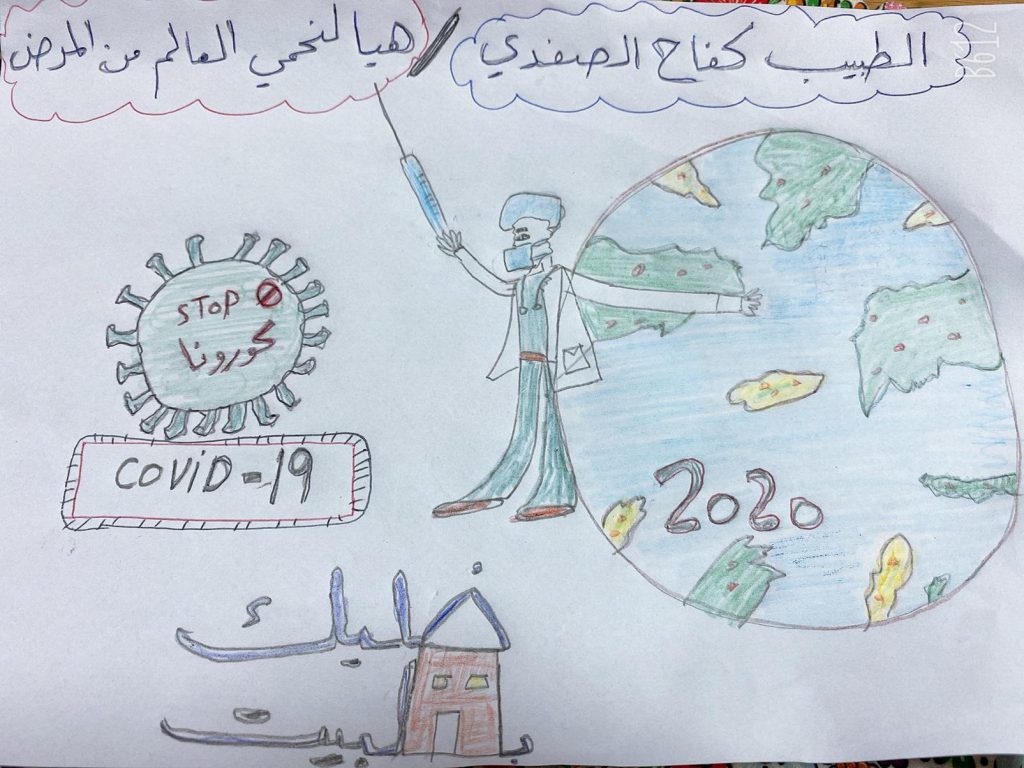 الطبيب كفاح الصفدي
هيا لنحمي العالم من المرض
STOP
كورونا
COVID-19
2020
خليك
بالبيت
B612